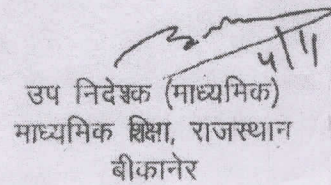 4/11
उप निदेशक (माध्यमिक)
माध्यमिक शिक्षा, राजस्थान
बीकानेर